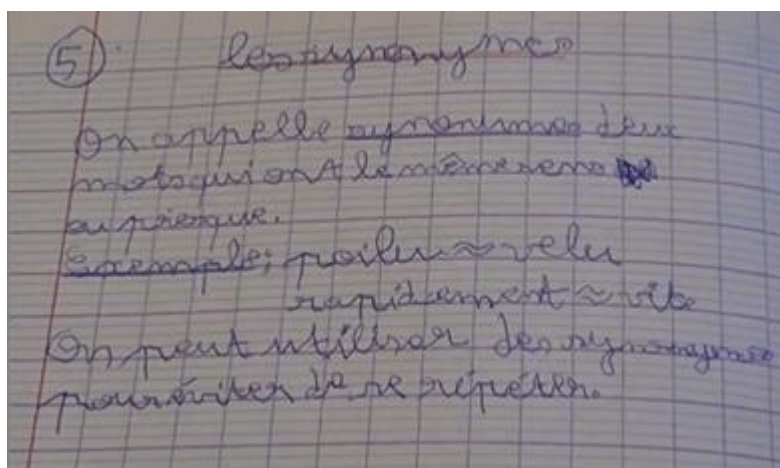 ⑤ les synonymes
On appelle synonimes deux
mots qui ont le même sens
ou presque.
Exemple : poilu ≈ velu
rapidement ≈ vite
On peut utiliser des synonymes
pour éviter de se répéter.